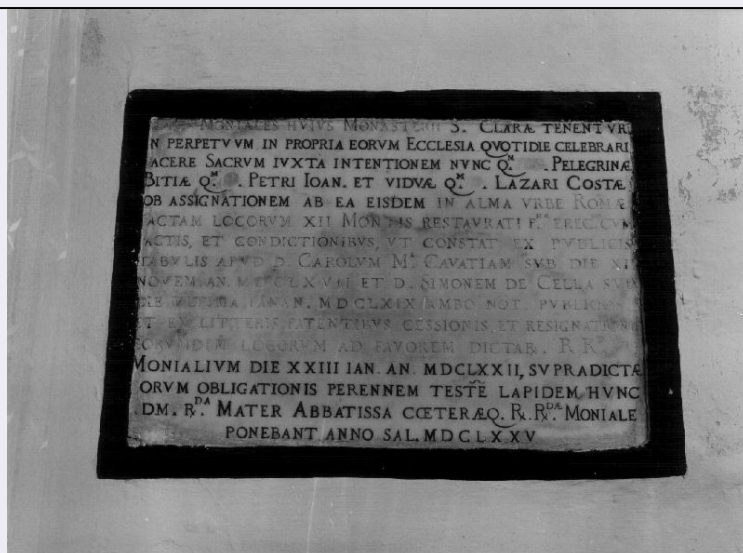 MONIALES HVIVS MONASTERII S. CLARÆ TENENTVR
N PERPETVVM IN PROPRIA EORVM ECCLESIA QVOTIDIE CELEBRARI
ACERE SACRVM IVXTA INTENTIONEM NVNC Q.M PELEGRINÆ
BITIÆ Q.M PETRI IOAN. ET VIDVÆ Q.M LAZARI COSTÆ
OB ASSIGNATIONEM AB EA EISDEM IN ALMA VRBE ROMÆ
ACTAM LOCORVM XII MONTIS RESTAVRATI EREC. CVM
ACTIS, ET CONDICTIONIBVS, VT CONSTAT EX PVBLICIS
TABVLIS APVD D. CAROLVM M.A CAVATIAM SVB DIE XI
NOVEM. AN. ET D. SIMONEM DE CELLA SVB
IAN. AN. MDCLXIX AMBO NOT. PVBLICIS
ET EX LITTERIS PATENTIBVS CESSIONIS, ET RESIGNATIONIS
EORVMDEM LOCORVM AD FAVOREM DICTAR. R R.
MONIALIVM DIE XXIII IAN. AN. MDCLXXII, SVPRADICTÆ
ORVM OBLIGATIONIS PERENNEM TESTẼ LAPIDEM HVNC
DM. R.DA MATER ABBATISSA CŒTERÆQ. R. R.DÆ MONIALE
PONEBANT ANNO SAL. MDCLXXV